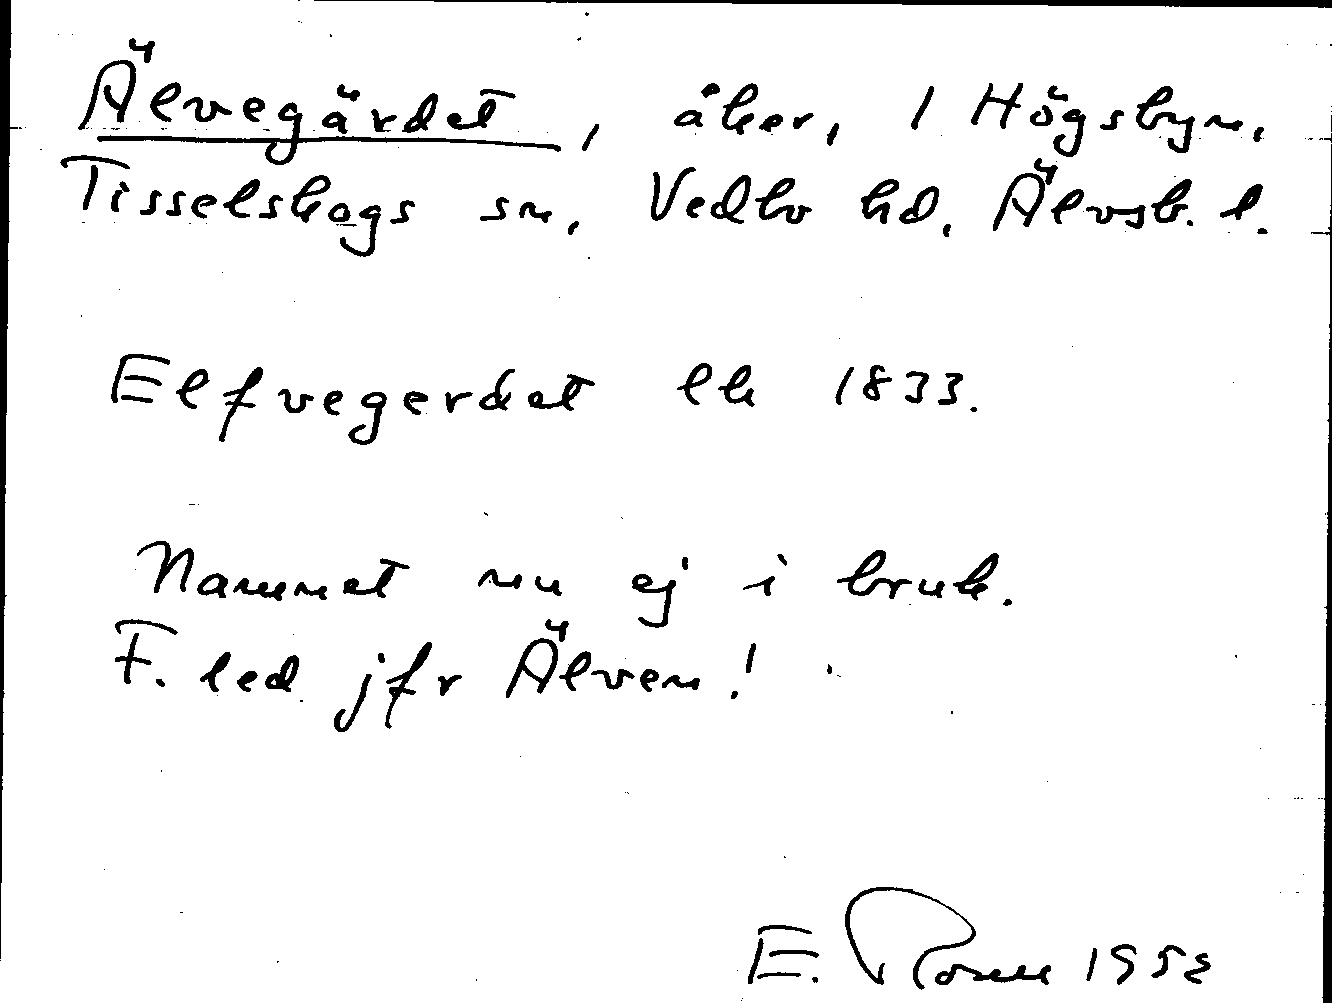 Älvegärdet, åker, 1 Högsbyn,
Tisselskogs sn, Vedbo hd, Älvsb. l.
Elfvegerdet lk 1833.
Namnet nu ej i bruk.
F. led jfr Älven!
E. 1952